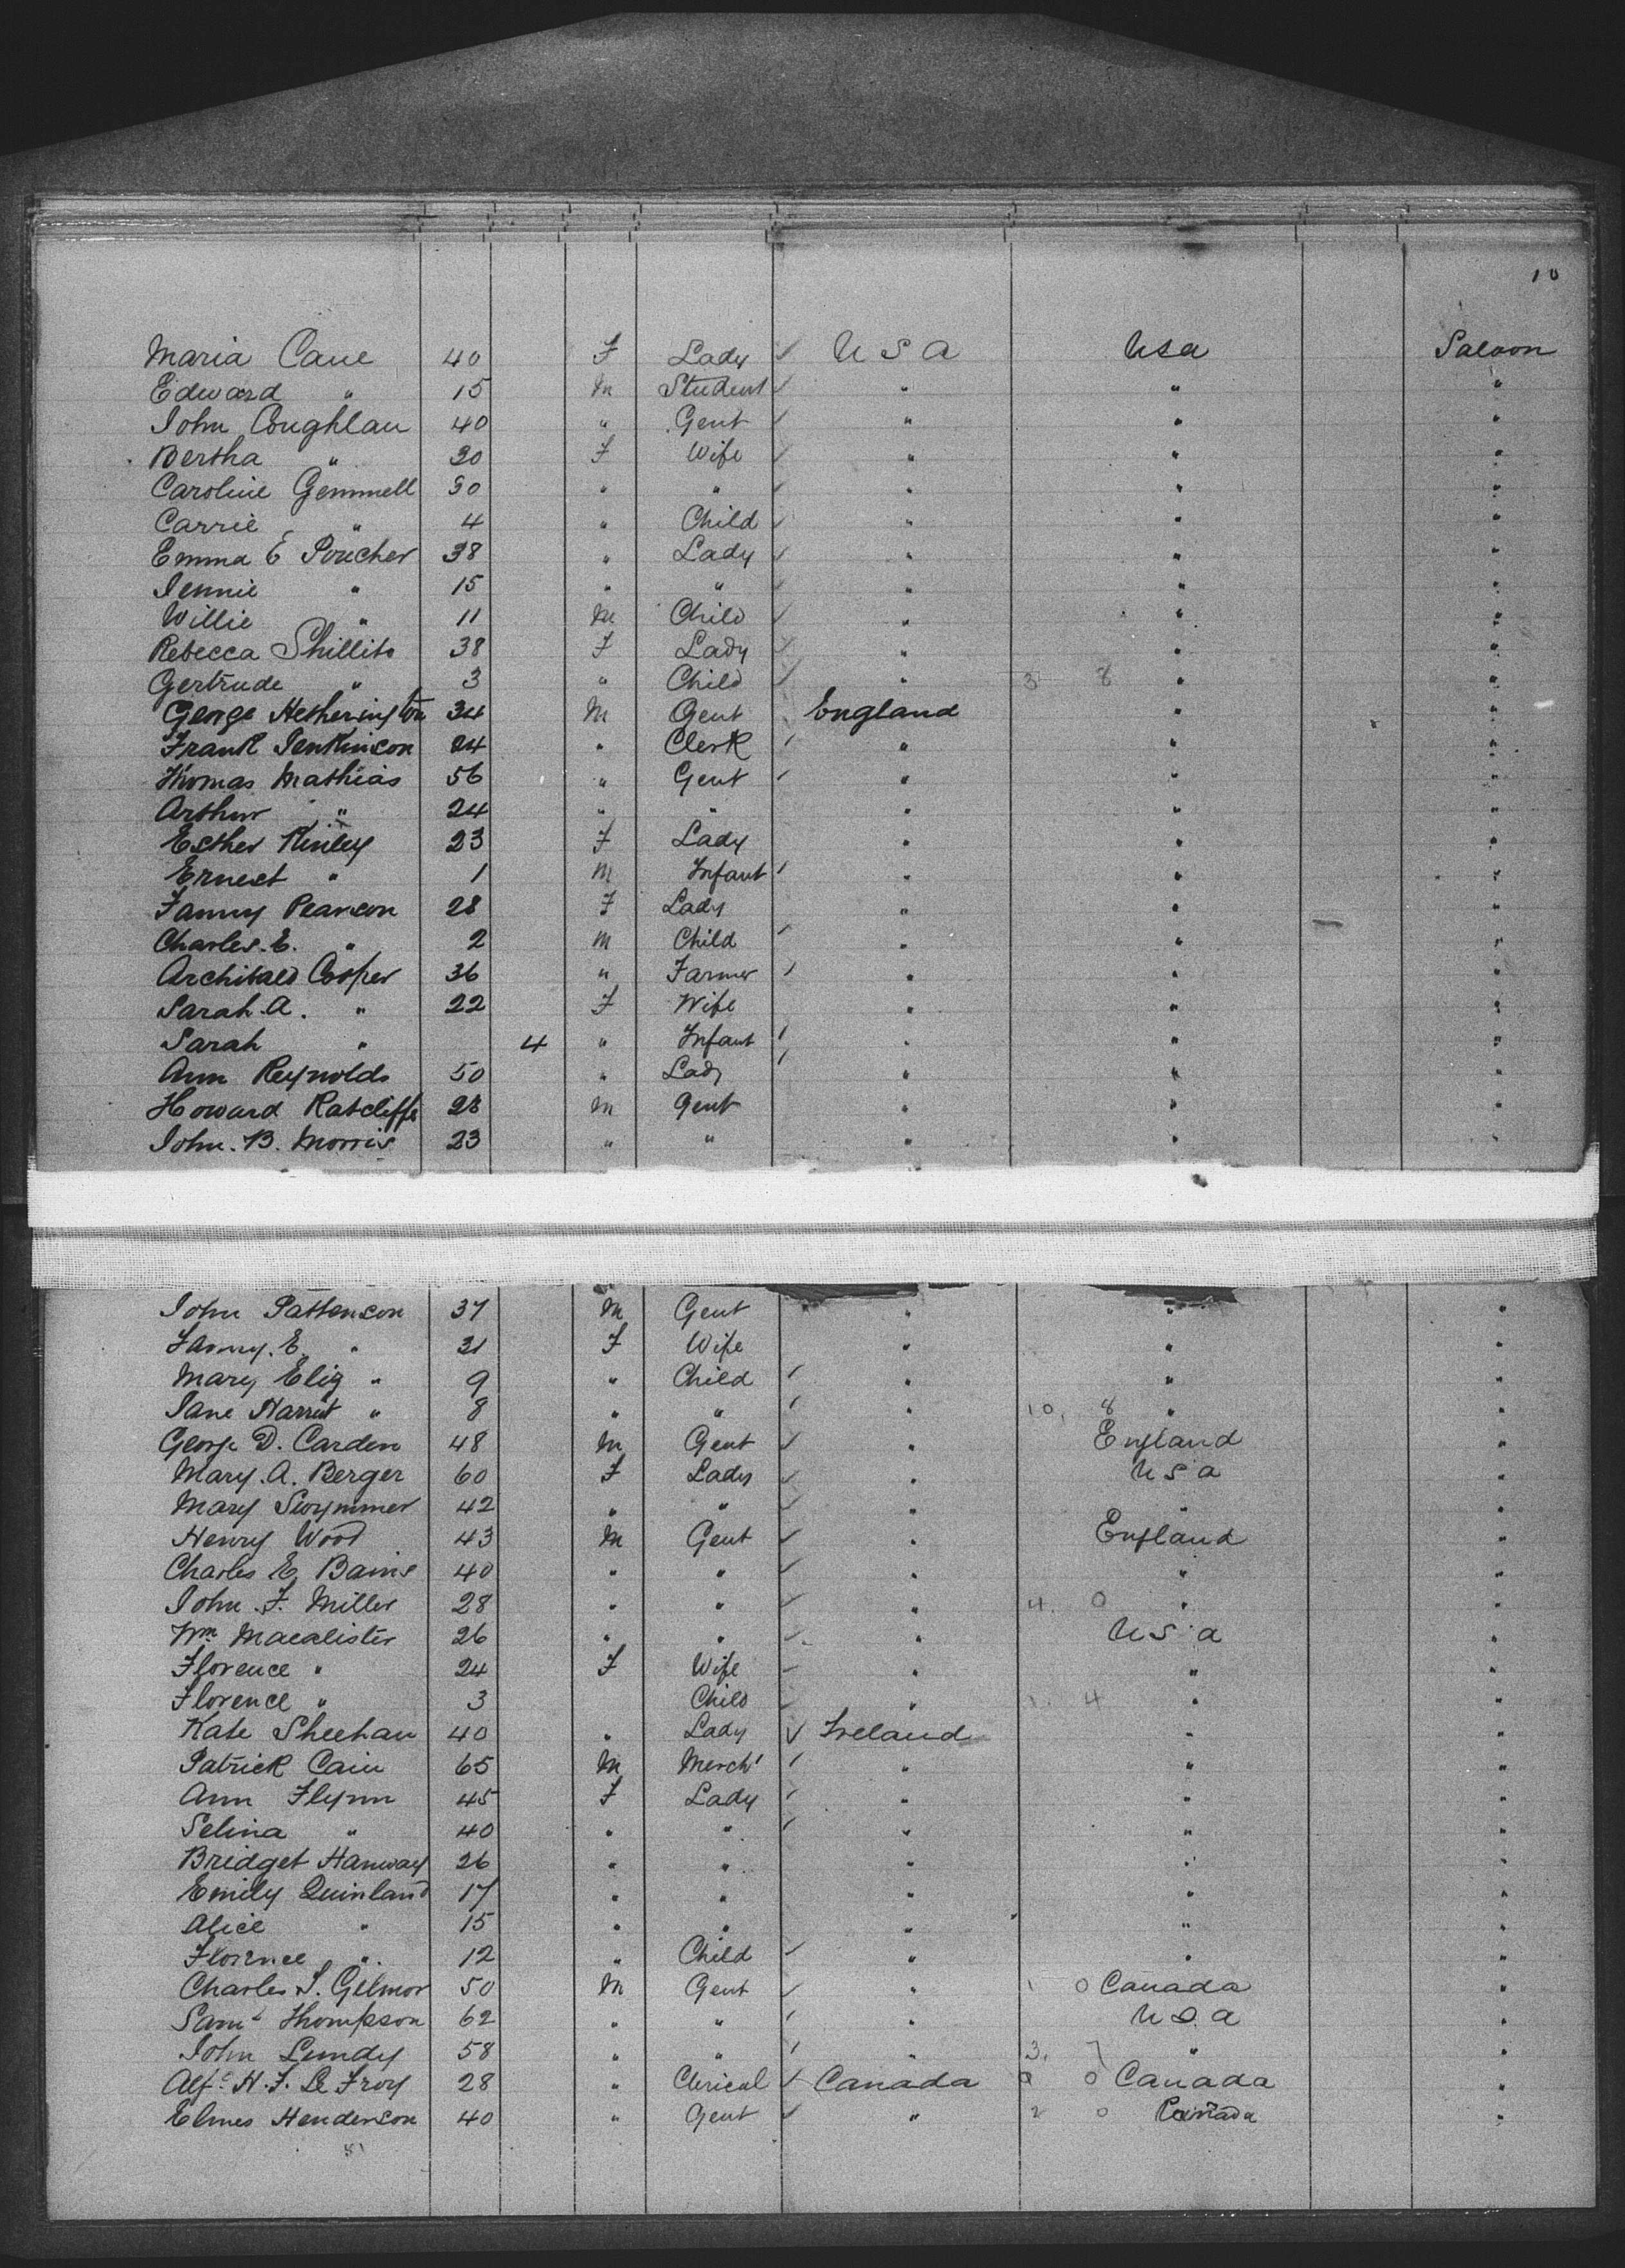 10
Maria Cane 40 F Lady ✓ U S A Usa Saloon
Edward " 15 M Student ✓ " " "
John Coughlan 40 " Gent ✓ " " "
Bertha " 30 F Wife ✓ " " "
Caroline Gemmell 30 " " ✓ " " "
Carrie " 4 " Child ✓ " " "
Emma E Poucher 38 " Lady ✓ " " "
Jennie " 15 " " ✓ " " "
Willie " 11 M Child ✓ " " "
Rebecca Shillito 38 F Lady ✓ " " "
Gertrude " 3 " Child ✓ " 3 8 " "
George Hetherington 34 M Gent England " "
Frank Jenkinson 24 " Clerk ✓ " " "
Thomas Mathias 56 " Gent ✓ " " "
Arthur " 24 " " " " "
Esther Kinley 23 F Lady " " "
Ernest " 1 M Infant ✓ " " "
Fanny Pearson 28 F Lady " " "
Charles. E. " 2 M Child ✓ " " "
Archibald Cooper 36 " Farmer ✓ " " "
Sarah. A. " 22 F Wife " " "
Sarah " 4 " Infant ✓ " " "
Ann Reynolds 50 " Lady ✓ " " "
Howard Ratcliffe 28 M Gent " " "
John. B. Morris 23 " " " " "
John Pattenson 37 M Gent " " "
Fanny. E. " 31 F Wife " " "
Mary Eliz " 9 " Child ✓ " " "
Jane Harriet " 8 " " ✓ " 10, 8 " "
George D. Carden 48 M Gent ✓ " England "
Mary. A. Berger 60 F Lady ✓ " U S a "
Mary Swymmer 42 " " ✓ " " "
Henry Wood 43 M Gent ✓ " England "
Charles E. Bains 40 " " ✓ " " "
John. F. Miller 28 " " ✓ " 4 0 " "
Wm Macalister 26 " " ✓ " U S a "
Florence " 24 F Wife ✓ " " "
Florence " 3 Child ✓ " 1. 4 " "
Kate Sheehan 40 " Lady ✓ Ireland " "
Patrick Cain 65 M Mercht ✓ " " "
Ann Flynn 45 F Lady ✓ " " "
Selina " 40 " " ✓ " " "
Bridget Hanway 26 " " " " "
Emily Quinland 17 " " " " "
Alice " 15 " " " " "
Florence " 12 " Child ✓ " " "
Charles S. Gilmor 50 M Gent ✓ " 1 0 Canada "
Saml Thompson 62 " " ✓ " U S. a "
John Lundy 58 " " ✓ " 3. 7 " "
Alfd H. F. Le Froy 28 " Clerical ✓ Canada 0 Canada "
Elmes Henderson 40 " Gent ✓ " 2 0 Canada "